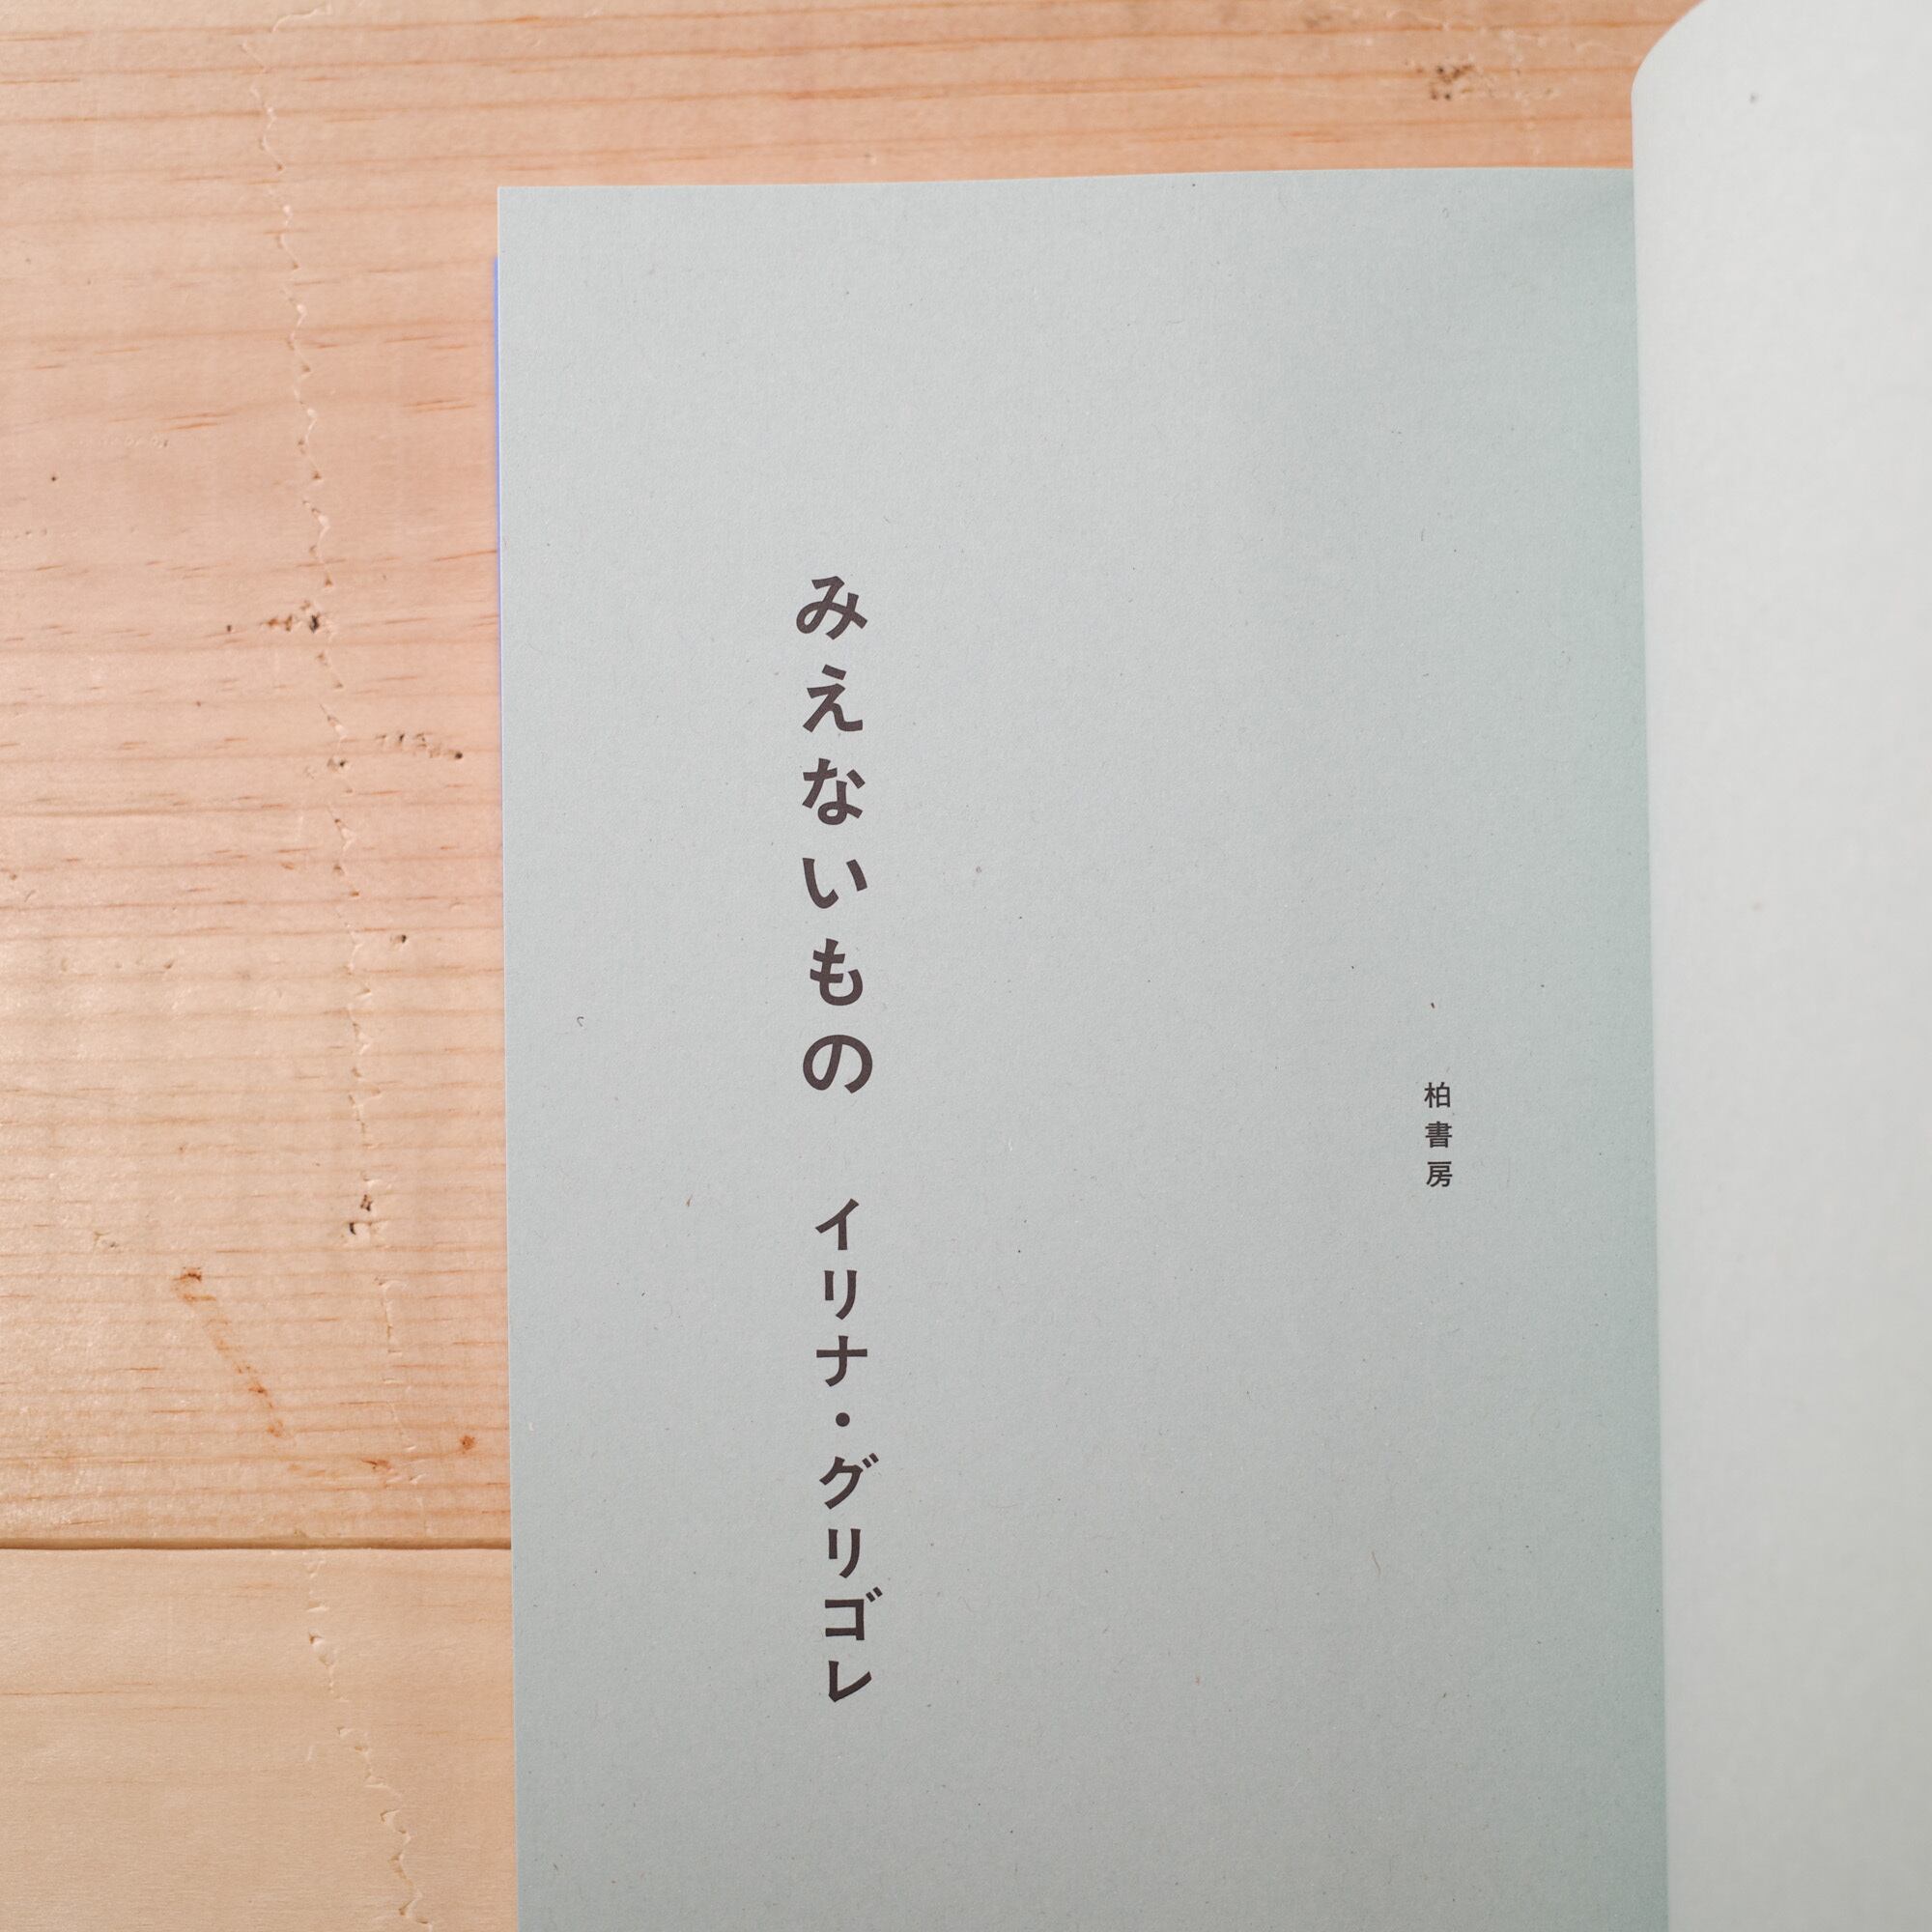 みえないもの イリナ・グリゴレ
柏書房